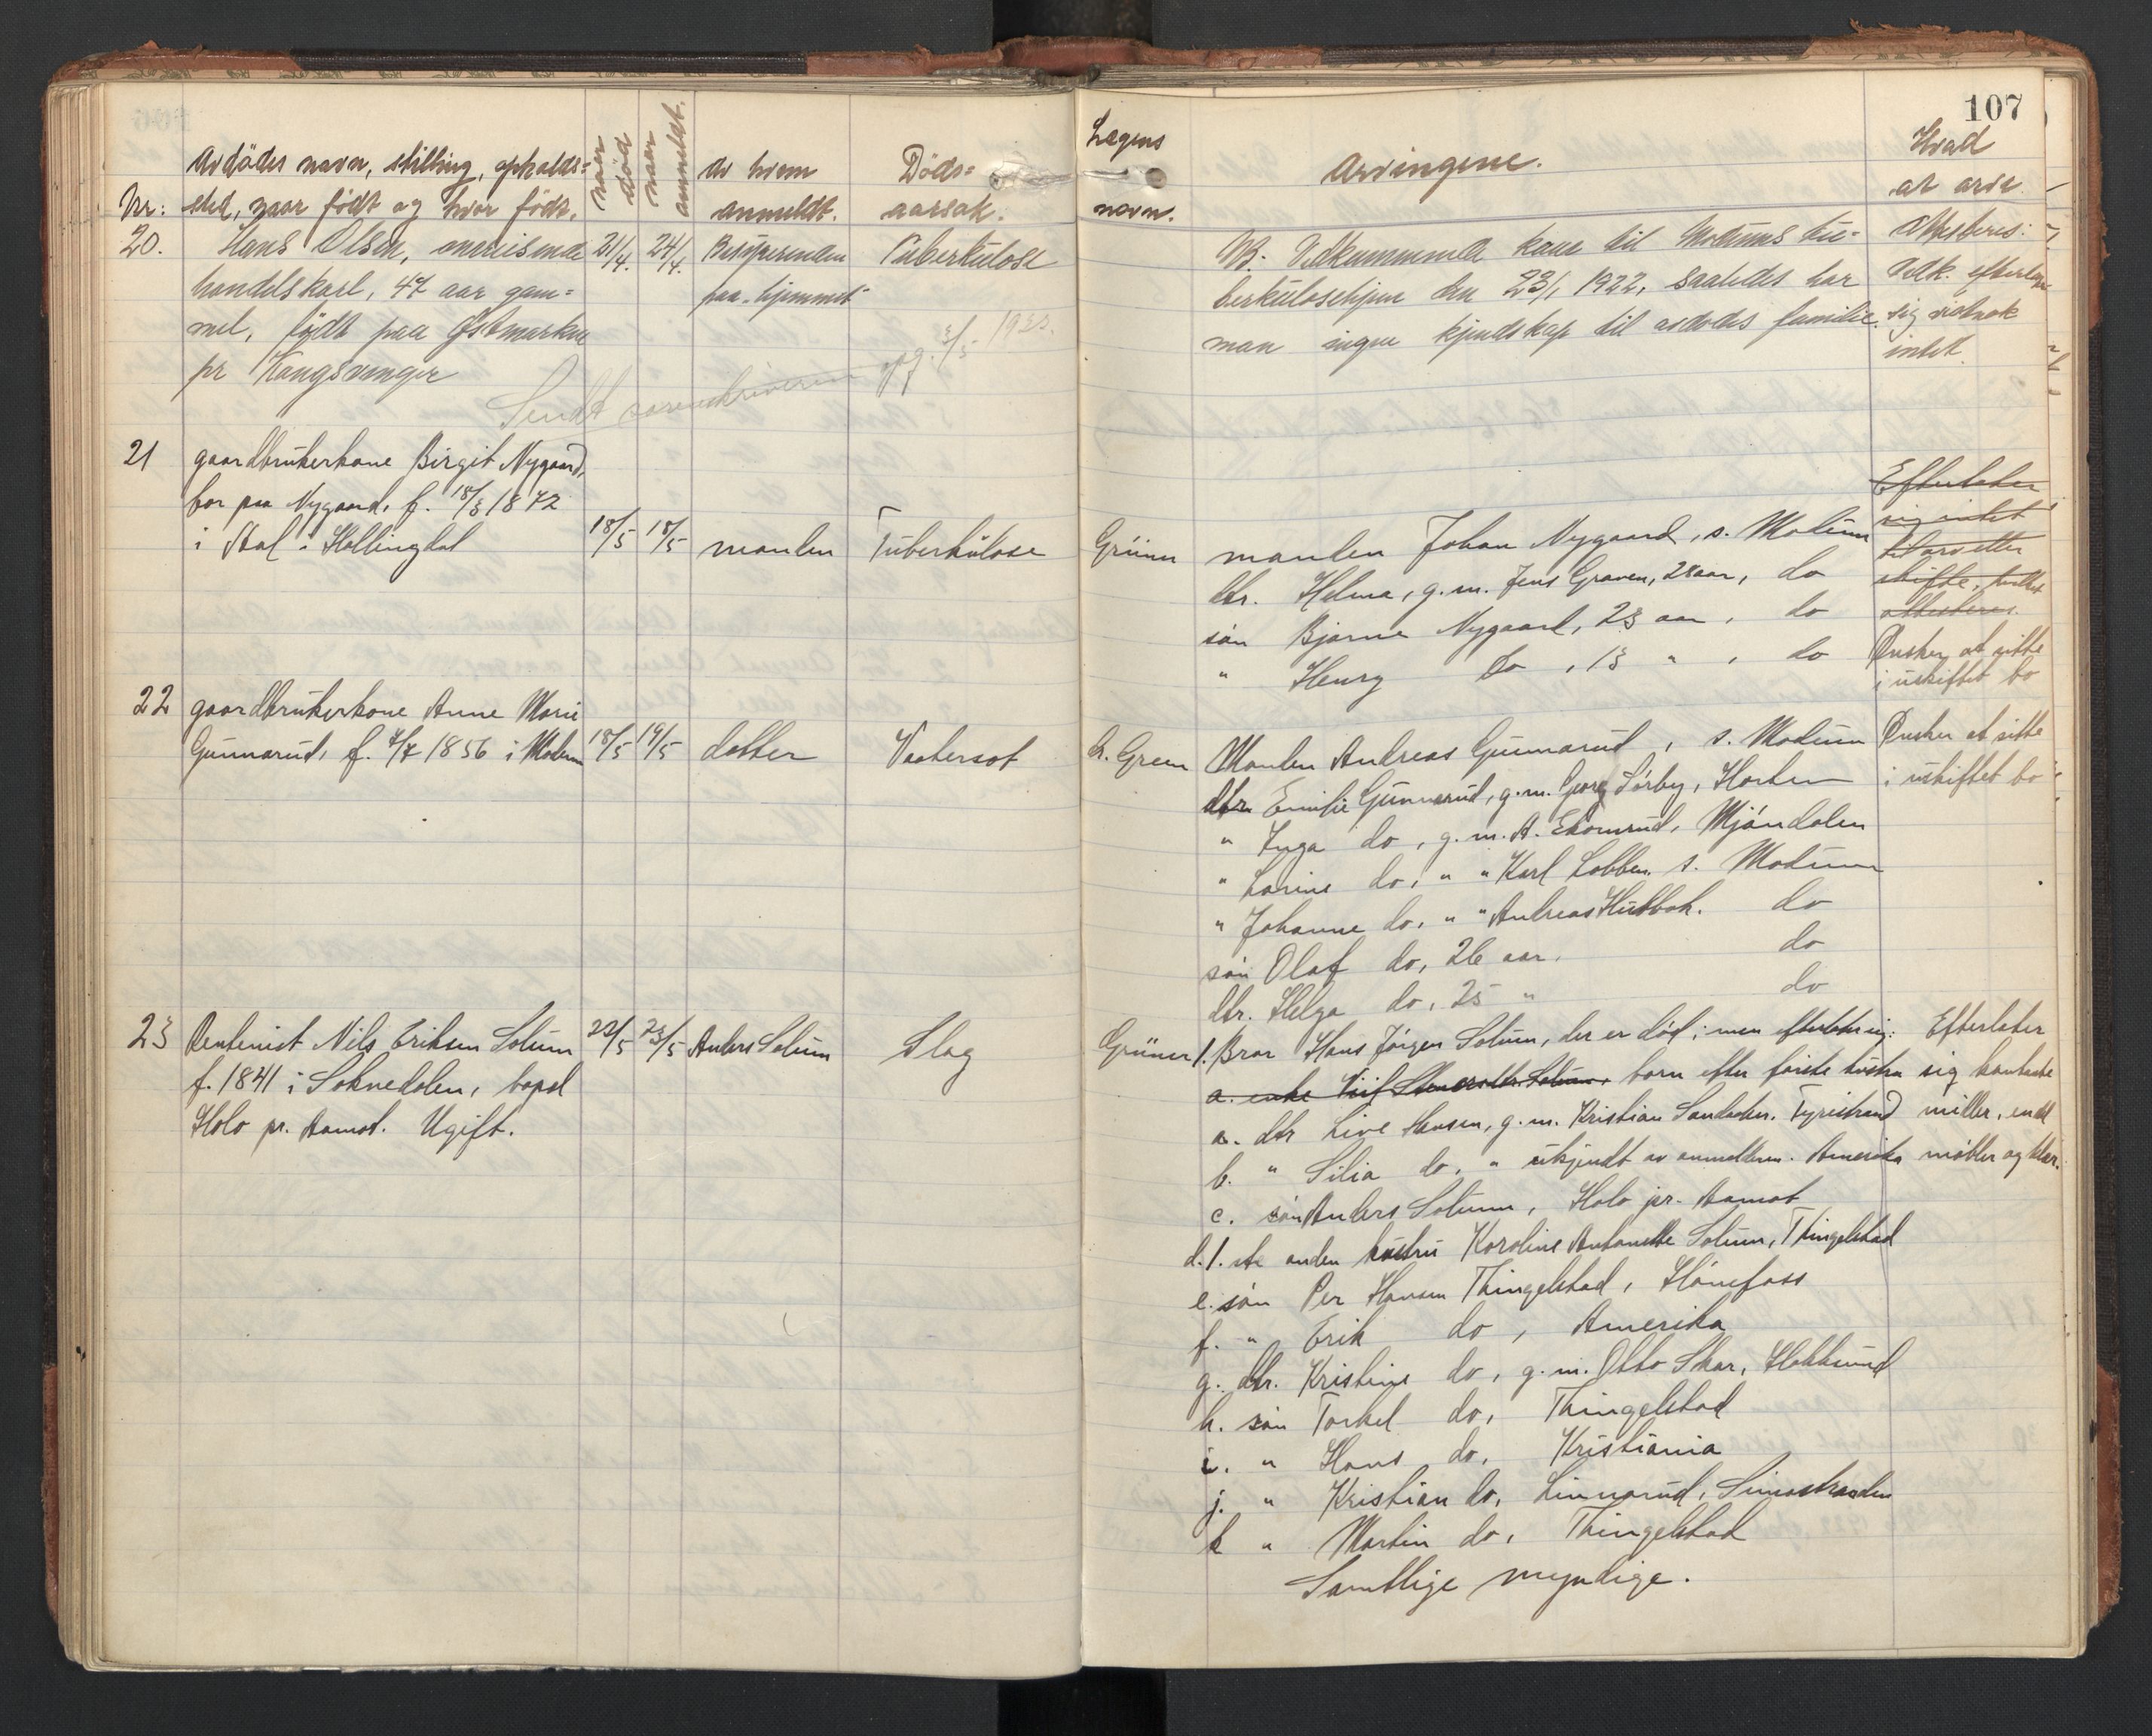 107
Nr:
Avdødes navn, stilling, opholds-
sted, naar født og hvor født.
naar død
naar anmeldt.
Av hvem
anmeldt.
Døds-
aarsak.
Lægens
navn.
Arvingene.
Hvad
at arve
20.
Hans Olsen, omreisende
handelskarl, 47 aar gam-
mel, født paa Østmarken
pr Kongsvinger
21/4.
24/4.
Bestyrerinden
paa hjemmet
Tuberkulose
NB. Vedkommende kom til Modums tu-
berkulosehjem den 23/1 1922, saaledes har
man ingen kjendskap til avdødes familie.
Attesteres:
Vedk. efterlot
sig vistnok
intet
Sendt sorenskriveren
3/5 1922.
21
gaardbrukerkone Birgit Nygaard,
bor paa Nygaard, f. 18/3 1872
i Aal i Hallingdal
18/5
18/5
manden
Tuberkulose
Grüner
manden Johan Nygaard, s. Modum
dtr. Helma, g.m. Jens Graven, 28 aar, do
søn Bjarne Nygaard, 23 aar, do
" Henry do, 13 " , do
Efterlater
sig intet
til arv etter
skifte, hvilket
attesteres.
Ønsker at sitte
i uskiftet bo
22
gaardbrukerkone Anne Marie
Gunnarud, f. 7/7 1856 i Modum
18/5
19/5
datter
Vattersot
A. Green
Manden Andreas Gunnarud, s. Modum
dtr Emilie Gunnarud, g.m. Georg Sørby, Horten
" Inga do, g.m. A. Ekornrud, Mjøndalen
" Larine do, " " Karl Lobben, s. Modum
" Johanne do, " " Andreas Hulbak. do
søn Olaf do, 26 aar. do
dtr. Helga do, 25 " do
Ønsker at sitte
i uskiftet bo
23
Rentenist Nils Eriksen Solum
f. 1841 i Soknedalen, bopæl
Holo pr. Aamot. Ugift.
22/5
23/5
Anders Solum
Slag
Grüner
1. Bror Hans Jørgen Solum, der er død; men efterlot sig:
a. enke Siif Steenersdtr. Solum, barn efter første hustru
a. dtr Live Hansen, g.m. Kristian Sandaker. Tyristrand
b. " Silia do, " ukjendt av anmelderen. Amerika
c. søn Anders Solum, Holo pr. Aamot
d. 1. ste anden hustru Karoline Antonette Solum, Thingelstad
e. søn Per Hansen Thingelstad, Hønefoss
f. " Erik do, Amerika
g. dtr. Kristine do, g.m. Otto Skar, Hokksund
h. søn Torkel do, Thingelstad
i. " Hans do, Kristiania
j. " Kristian do, Linnerud, Simostranden
k " Martin do, Thingelstad
Samtlige myndige.
Efterlater
sig kontante
midler, endel
møbler og klær.